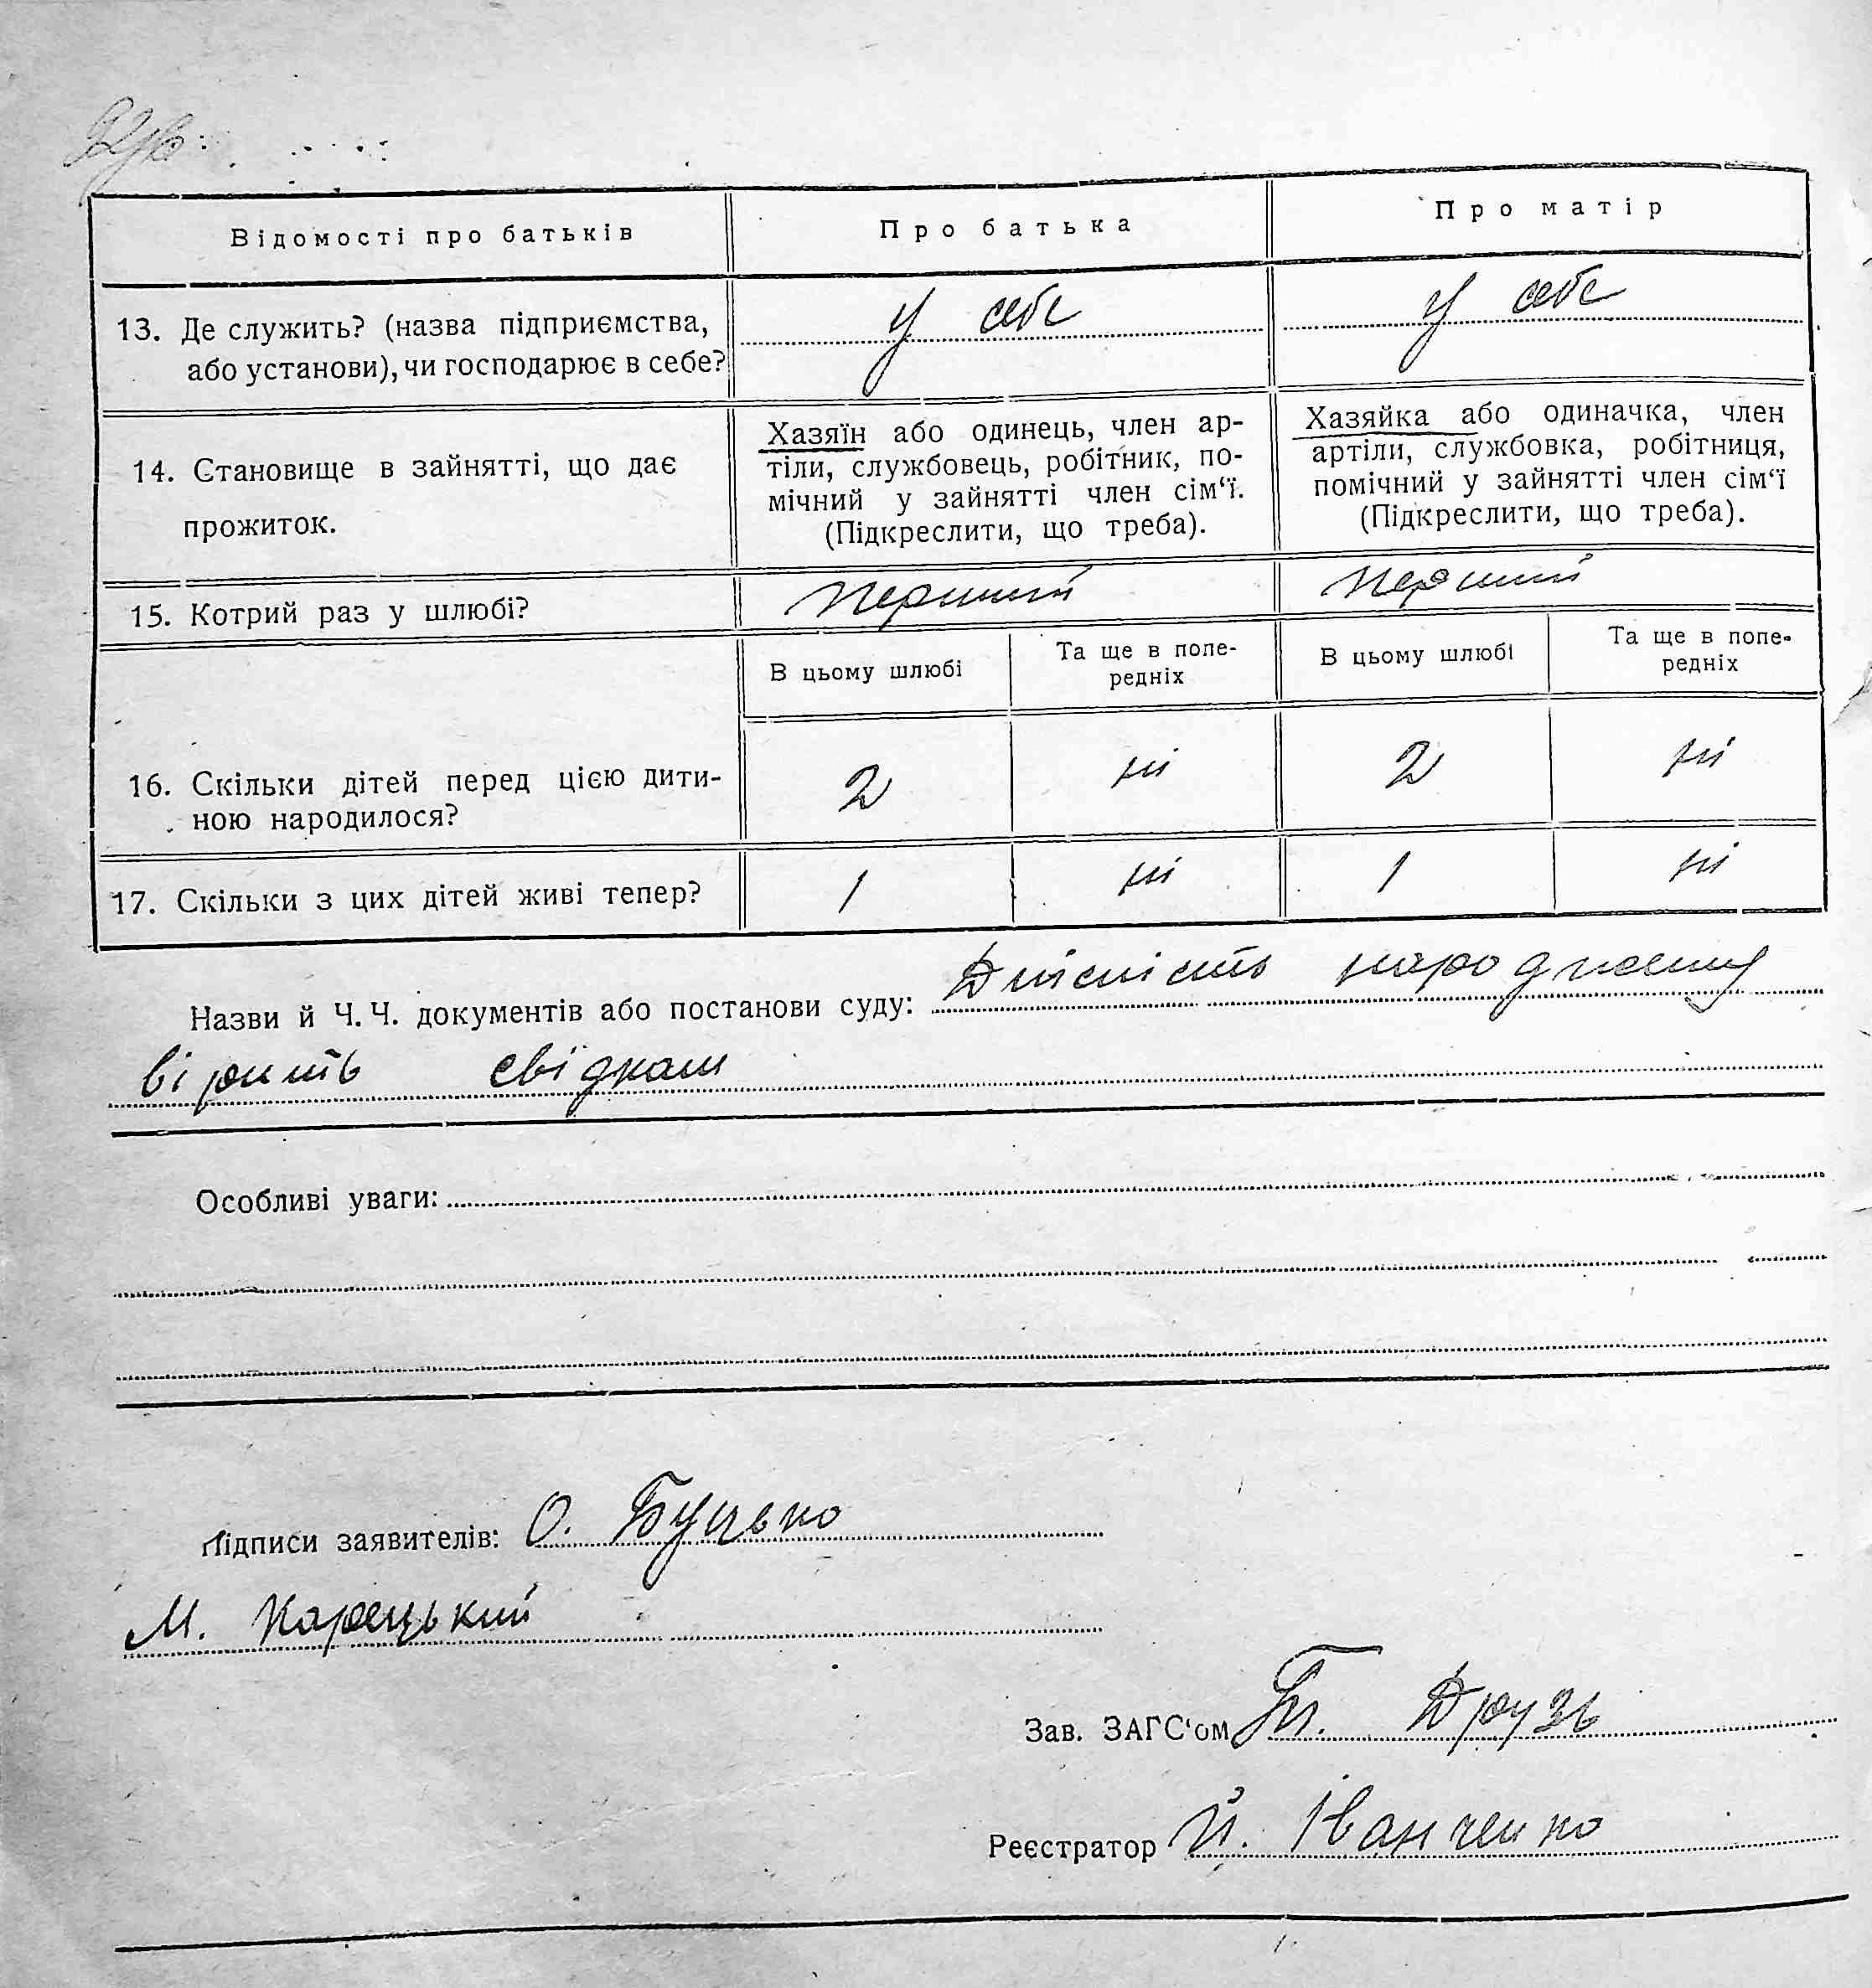 Відомості про батьків
Про батька
Про матір
13. Де служить? (назва підприємства,
або установи), чи господарює в себе?
у себе
у себе
14. Становище в зайнятті, що дає
прожиток.
Хазяїн або одинець, член ар-
тіли, службовець, робітник, по-
мічний у зайнятті член сім‘ї.
(Підкреслити, що треба).
Хазяйка або одиначка, член
артіли, службовка, робітниця,
помічний у зайнятті член сім‘ї
(Підкреслити, що треба).
15. Котрий раз у шлюбі?
перший
перший
В цьому шлюбі
Та ще в попе-
редніх
В цьому шлюбі
Та ще в попе-
редніх
16. Скільки дітей перед цією дити-
ною народилося?
2
ні
2
ні
17. Скільки з цих дітей живі тепер?
1
ні
1
ні
Назви й Ч. Ч. документів або постанови суду: Дійсність народження
вірить свідкам
Особливі уваги:
Підписи заявителів: О. Буцько
М. Карецький
Зав. ЗАГС‘ом П. Друзь
Реєстратор Й. Іванченко